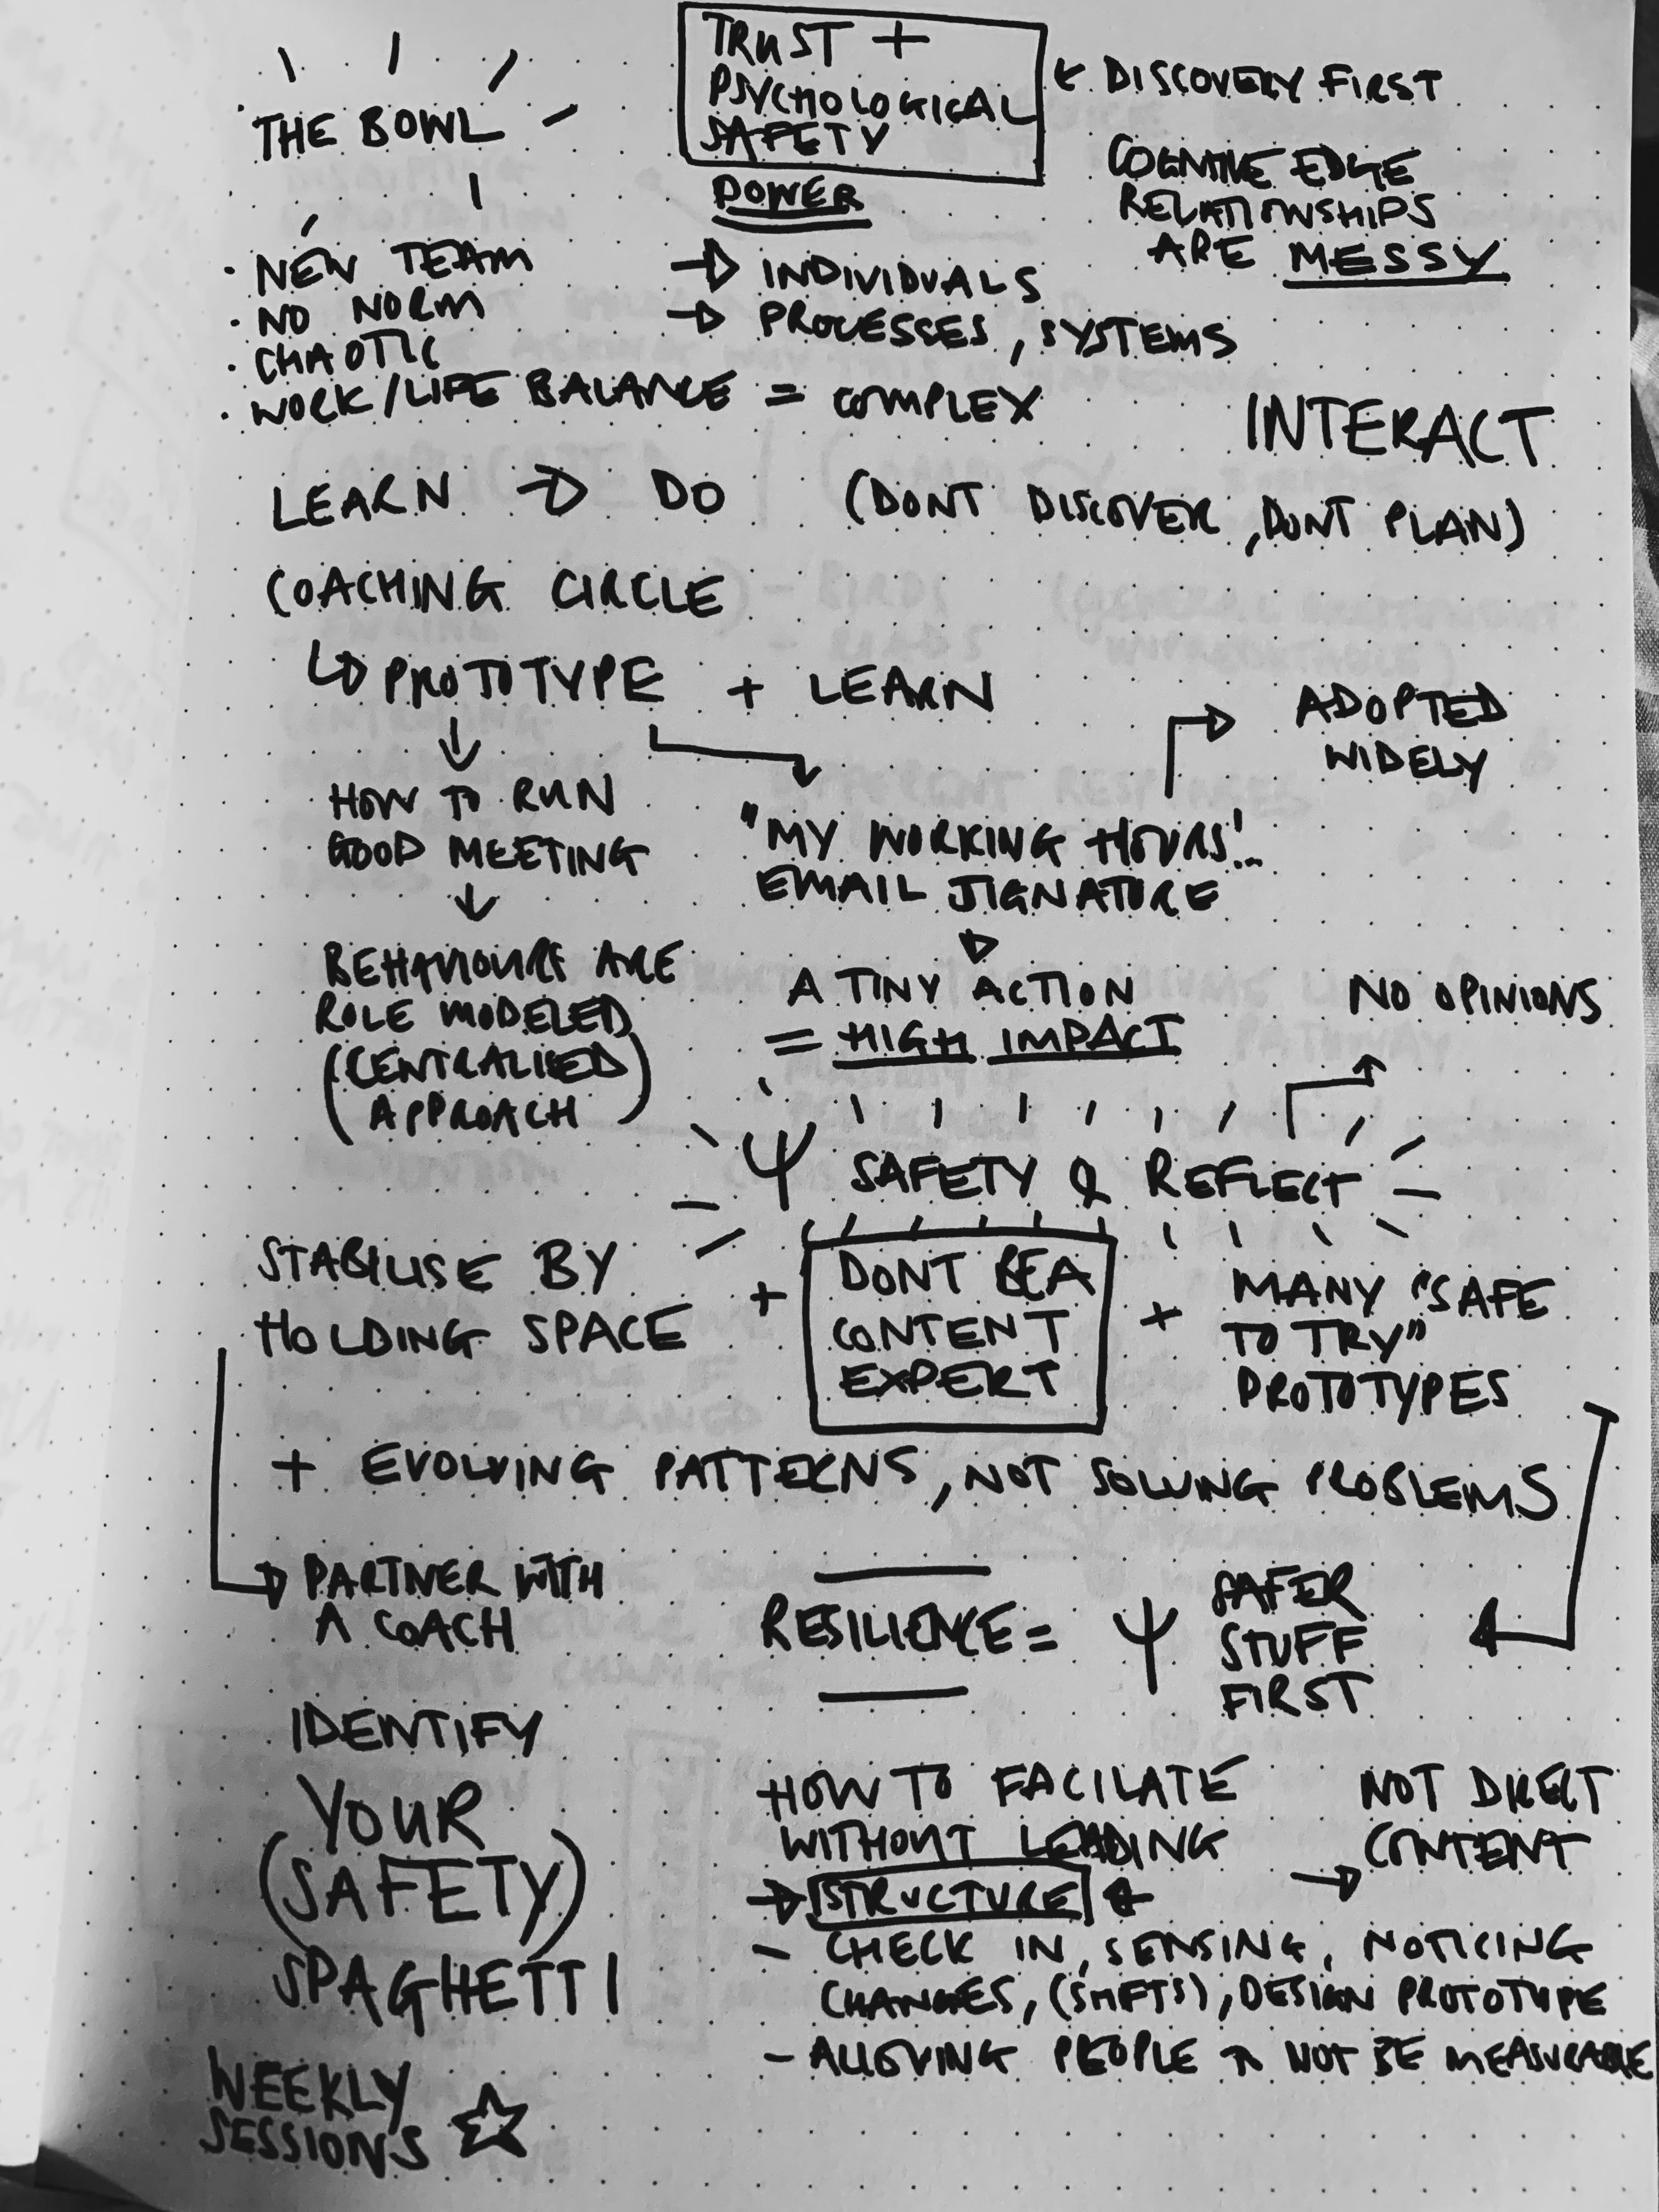 TRUST +
PSYCHOLOGICAL
SAFETY
← DISCOVERY FIRST
THE BOWL
POWER
COGNITIVE EDGE
RELATIONSHIPS
ARE MESSY
· NEW TEAM
· NO NORM
· CHAOTIC
· WORK/LIFE BALANCE = COMPLEX
→ INDIVIDUALS
→ PROCESSES, SYSTEMS
INTERACT
LEARN → DO (DONT DISCOVER, DONT PLAN)
COACHING CIRCLE
↳ PROTOTYPE + LEARN
ADOPTED
WIDELY
HOW TO RUN
GOOD MEETING
"MY WORKING HOURS"
EMAIL SIGNATURE
BEHAVIOURS ARE
ROLE MODELED
(CENTRALISED
APPROACH)
A TINY ACTION
= HIGH IMPACT
NO OPINIONS
Ψ SAFETY & REFLECT
STABILISE BY
HOLDING SPACE
+ DONT BE A
CONTENT
EXPERT
+ MANY "SAFE
TO TRY"
PROTOTYPES
+ EVOLVING PATTERNS, NOT SOLVING PROBLEMS
PARTNER WITH
A COACH
RESILIENCE = Ψ
SAFER
STUFF
FIRST
IDENTIFY
YOUR
(SAFETY)
SPAGHETTI
HOW TO FACILATE
WITHOUT LEADING
→ STRUCTURE ←
→ NOT DIRECT
CONTENT
- CHECK IN, SENSING, NOTICING
CHANGES, (SHIFTS), DESIGN PROTOTYPE
- ALLOWING PEOPLE NOT BE MEASURABLE
WEEKLY
SESSIONS ☆